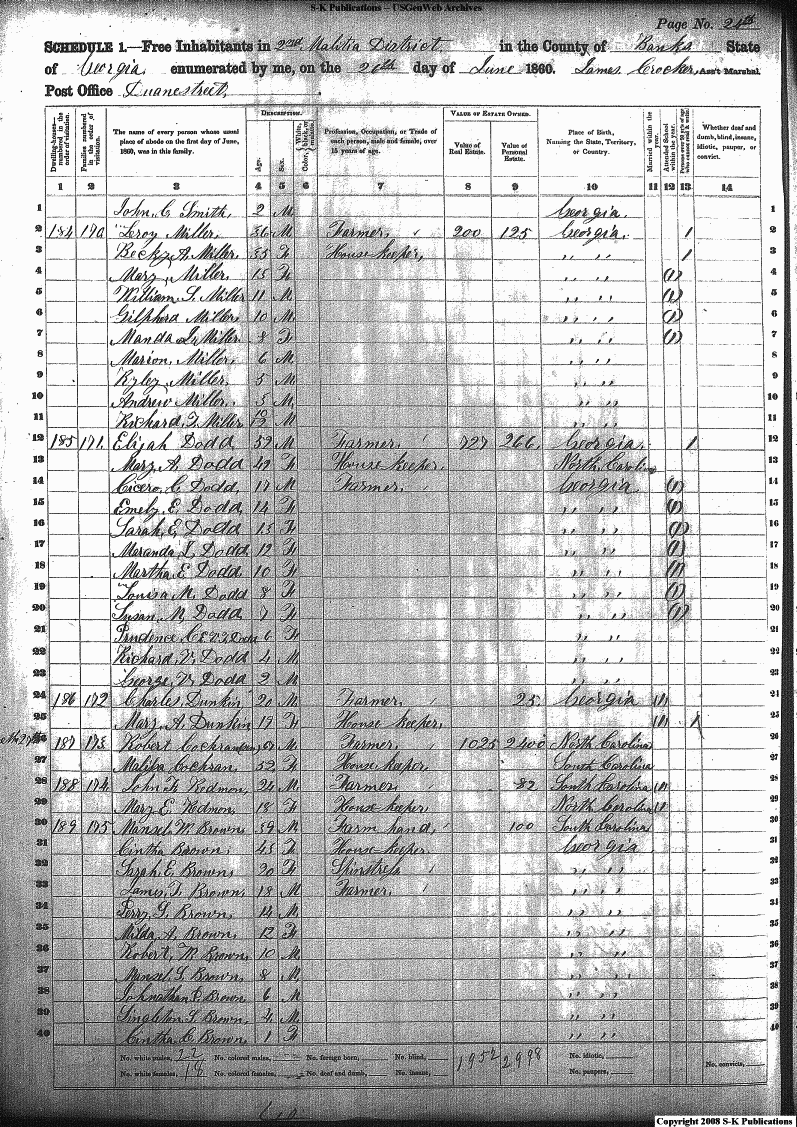 S-K Publications – USGenWeb Archives
Page No. 24th
SCHEDULE 1.—Free Inhabitants in 2nd Malitia District in the County of Banks State
of Georgia enumerated by me, on the 20th day of June 1860. James Crocker, Ass't Marshal.
Post Office Duanestreet,
Dwelling-houses—numbered in the order of visitation.
Families numbered in the order of visitation.
The name of every person whose usual place of abode on the first day of June, 1860, was in this family.
DESCRIPTION.
Age.
Sex.
Color, White, black, or mulatto.
Profession, Occupation, or Trade of each person, male and female, over 15 years of age.
VALUE OF ESTATE OWNED.
Value of Real Estate.
Value of Personal Estate.
Place of Birth, Naming the State, Territory, or Country.
Married within the year.
Attended School within the year.
Persons over 20 y'rs of age who cannot read & write.
Whether deaf and dumb, blind, insane, idiotic, pauper, or convict.
1 2 3 4 5 6 7 8 9 10 11 12 13 14
1 John C. Smith, 2 M Georgia. 1
2 184 170 Leroy Miller, 36 M Farmer, 200 125 Georgia. / 2
3 Becky A. Miller, 35 F House keeper, " " / 3
4 Mary Miller, 15 F " " (1) 4
5 William S. Miller 11 M " " (1) 5
6 Gilpherd Miller, 10 M " " (1) 6
7 Manda L. Miller, 8 F " " (1) 7
8 Marion, Miller, 6 M " " 8
9 Ryley, Miller, 5 M " " 9
10 Andrew Miller, 3 M " " 10
11 Richard F. Miller 10/12 M " " 11
12 185 171. Elijah Dodd 52 M Farmer, 727 266. Georgia. / 12
13 Mary A. Dodd 42 F House keeper. North, Carolina 13
14 Cicero, C. Dodd, 17 M Farmer, Georgia (1) 14
15 Emely, E. Dodd, 14 F " " (1) 15
16 Sarah, E. Dodd, 13 F " " (1) 16
17 Maranda L. Dodd, 12 F " " (1) 17
18 Martha E. Dodd, 10 F " " (1) 18
19 Louisa M. Dodd 8 F " " (1) 19
20 Susan M. Dodd 7 F " " (1) 20
21 Prudence, C. E. V. J. Dodd 6 F " " 21
22 Richard, V. Dodd 4 M " " 22
23 George, W. Dodd 2 M " " 23
24 186 172 Charles, Dunkin 20 M Farmer, 25. Georgia / 24
25 Mary, A. Dunkin 19 F House keeper, / / 25
26 187 173. Robert Cochran M Farmer, 1025 2400 North Carolina 26
27 Malissa Cochran, 52 F House keeper South Carolina 27
28 188 174 John F. Redmon, 24 M Farmer 82 South Carolina / 28
29 Mary E. Redmon, 18 F House keeper North Carolina / 29
30 189 175 Mansel W. Brown 39 M Farm hand, 100 South Carolina 30
31 Cintha Brown, 43 F House keeper. Georgia 31
32 Sarah E. Brown 20 F Spinstress " " 32
33 James, T. Brown, 18 M Farmer, " " 33
34 Perry G. Brown, 14 M " " 34
35 Milda, A. Brown, 12 F " " 35
36 Robert, M. Brown, 10 M " " 36
37 Mansel S. Brown, 8 M " " 37
38 Johnathan P. Brown 6 M " " 38
39 Singleton T. Brown, 4 M " " 39
40 Cintha C. Brown, 1 F " " 40
No. white males, 22 No. colored males, No. foreign born, No. blind, 1952 2998 No. idiotic,
No. white females, 18 No. colored females, No. deaf and dumb, No. insane, No. paupers, No. convicts,
Copyright 2008 S-K Publications